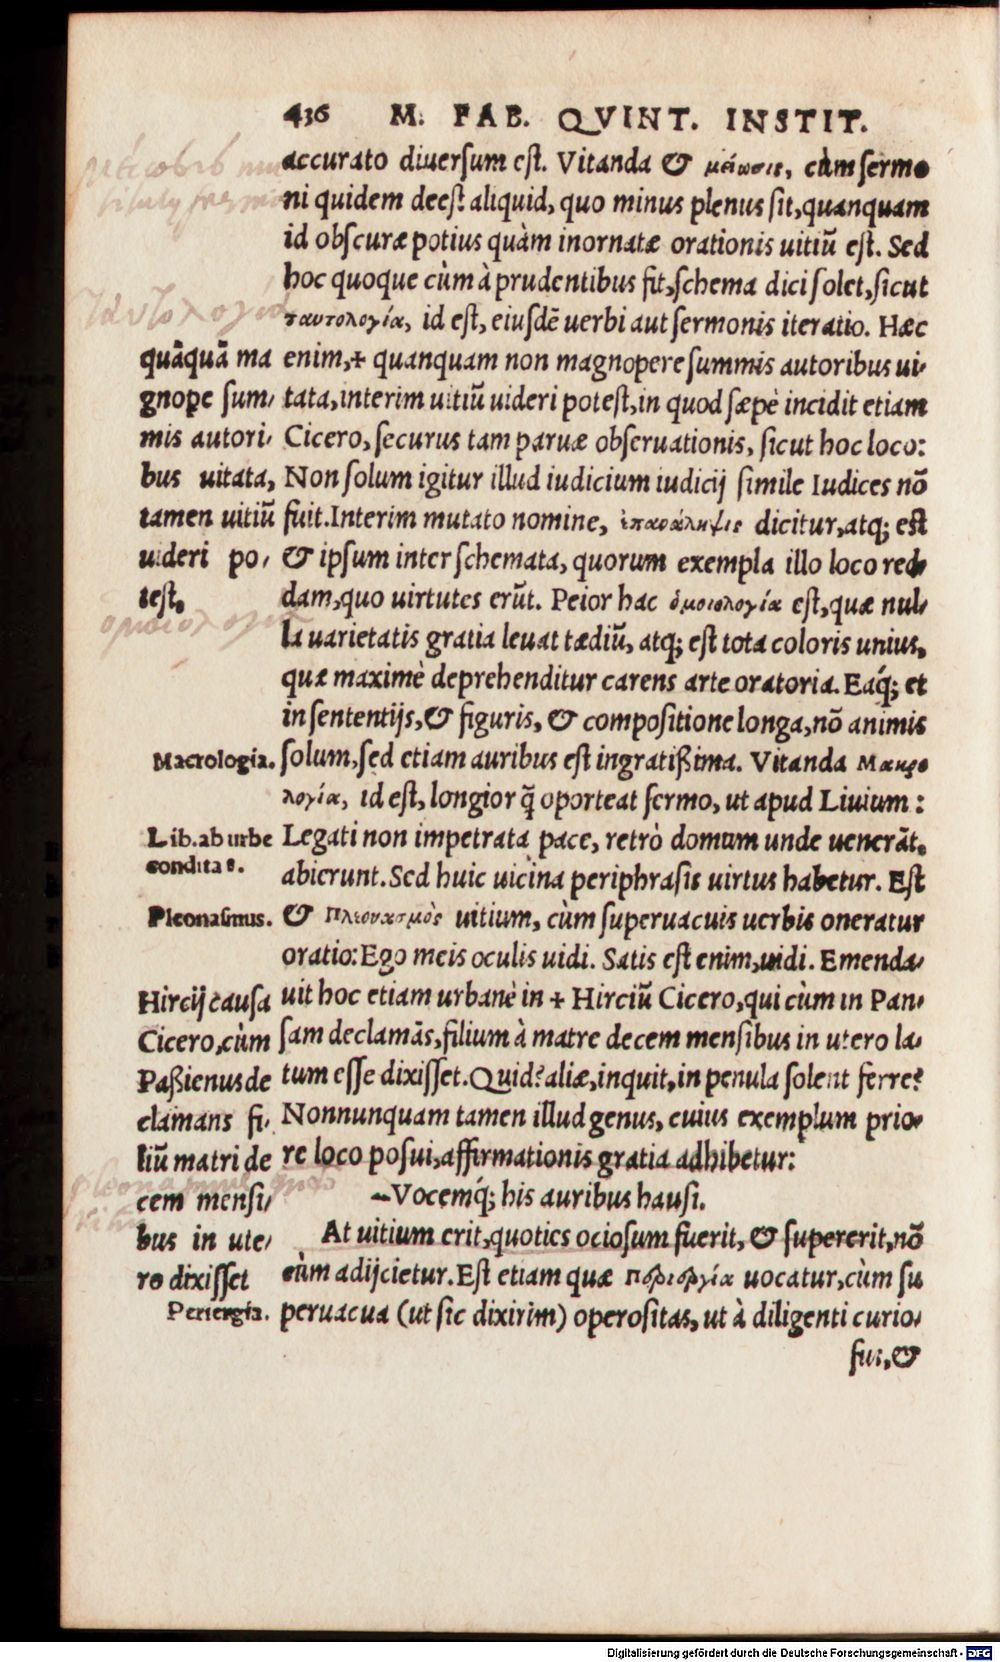 436 M. FAB. QVINT. INSTIT.
accurato diuersum est. Vitanda & μείωσις, cùm sermo
ni quidem deest aliquid, quo minus plenus sit, quanquam
id obscuræ potius quàm inornatæ orationis uitiũ est. Sed
hoc quoque cùm à prudentibus fit, schema dici solet, sicut
ταυτολογία, id est, eiusdẽ uerbi aut sermonis iteratio. Hæc
enim, + quanquam non magnopere summis autoribus ui-
tata, interim uitiũ uideri potest, in quod sæpè incidit etiam
Cicero, securus tam paruæ obseruationis, sicut hoc loco:
Non solum igitur illud iudicium iudicij simile Iudices nõ
fuit. Interim mutato nomine, ἐπαράληψις dicitur, atq; est
& ipsum inter schemata, quorum exempla illo loco red-
dam, quo uirtutes erũt. Peior hac ὁμοιολογία est, quæ nul-
la uarietatis gratia leuat tædiũ, atq; est tota coloris unius,
quæ maximè deprehenditur carens arte oratoria. Eaq́; et
in sententijs, & figuris, & compositione longa, nõ animis
solum, sed etiam auribus est ingratißima. Vitanda Μακρο
λογία, id est, longior q̃ oporteat sermo, ut apud Liuium:
Legati non impetrata pace, retrò domum unde uenerãt,
abierunt. Sed huic uicina periphrasis uirtus habetur. Est
& Πλεονασμὸς uitium, cùm superuacuis uerbis oneratur
oratio: Ego meis oculis uidi. Satis est enim, uidi. Emenda-
uit hoc etiam urbanè in + Hirciũ Cicero, qui cùm in Pan-
sam declamãs, filium à matre decem mensibus in utero la-
tum esse dixisset. Quid? aliæ, inquit, in penula solent ferre?
Nonnunquam tamen illud genus, cuius exemplum prio-
re loco posui, affirmationis gratia adhibetur:
—Vocemq́; his auribus hausi.
At uitium erit, quoties ociosum fuerit, & supererit, nõ
cùm adijcietur. Est etiam quæ περιεργία uocatur, cùm su
peruacua (ut sic dixirim) operositas, ut à diligenti curio-
sus, &
quãquã ma
gnope sum-
mis autori-
bus uitata,
tamen uitiũ
uideri po-
test.
Macrología.
Lib. ab urbe
conditae.
Pleonasmus.
Hircij causa
Cicero, cùm
Paßienus de
clamans fi-
liũ matri de
cem mensi-
bus in ute-
ro dixisset
Periergía.
ταυτολογία
ομοιολογια
Digitalisierung gefördert durch die Deutsche Forschungsgemeinschaft - DFG